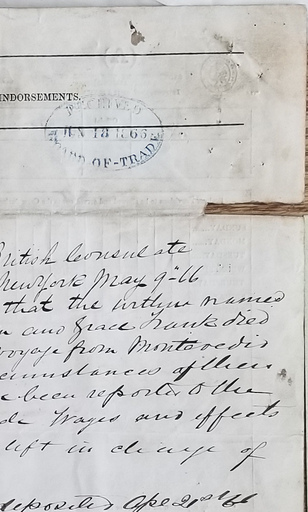 INDORSEMENTS.
RECEIVED
JUN 18 1866
BOARD-OF-TRADE
British Consulate
New York May 9th 66
that the within named
and Grace Frank died
voyage from Montevedio
cumstances of their
been reported to the
Wages and effects
left in charge of
deposited Ape 21st 66